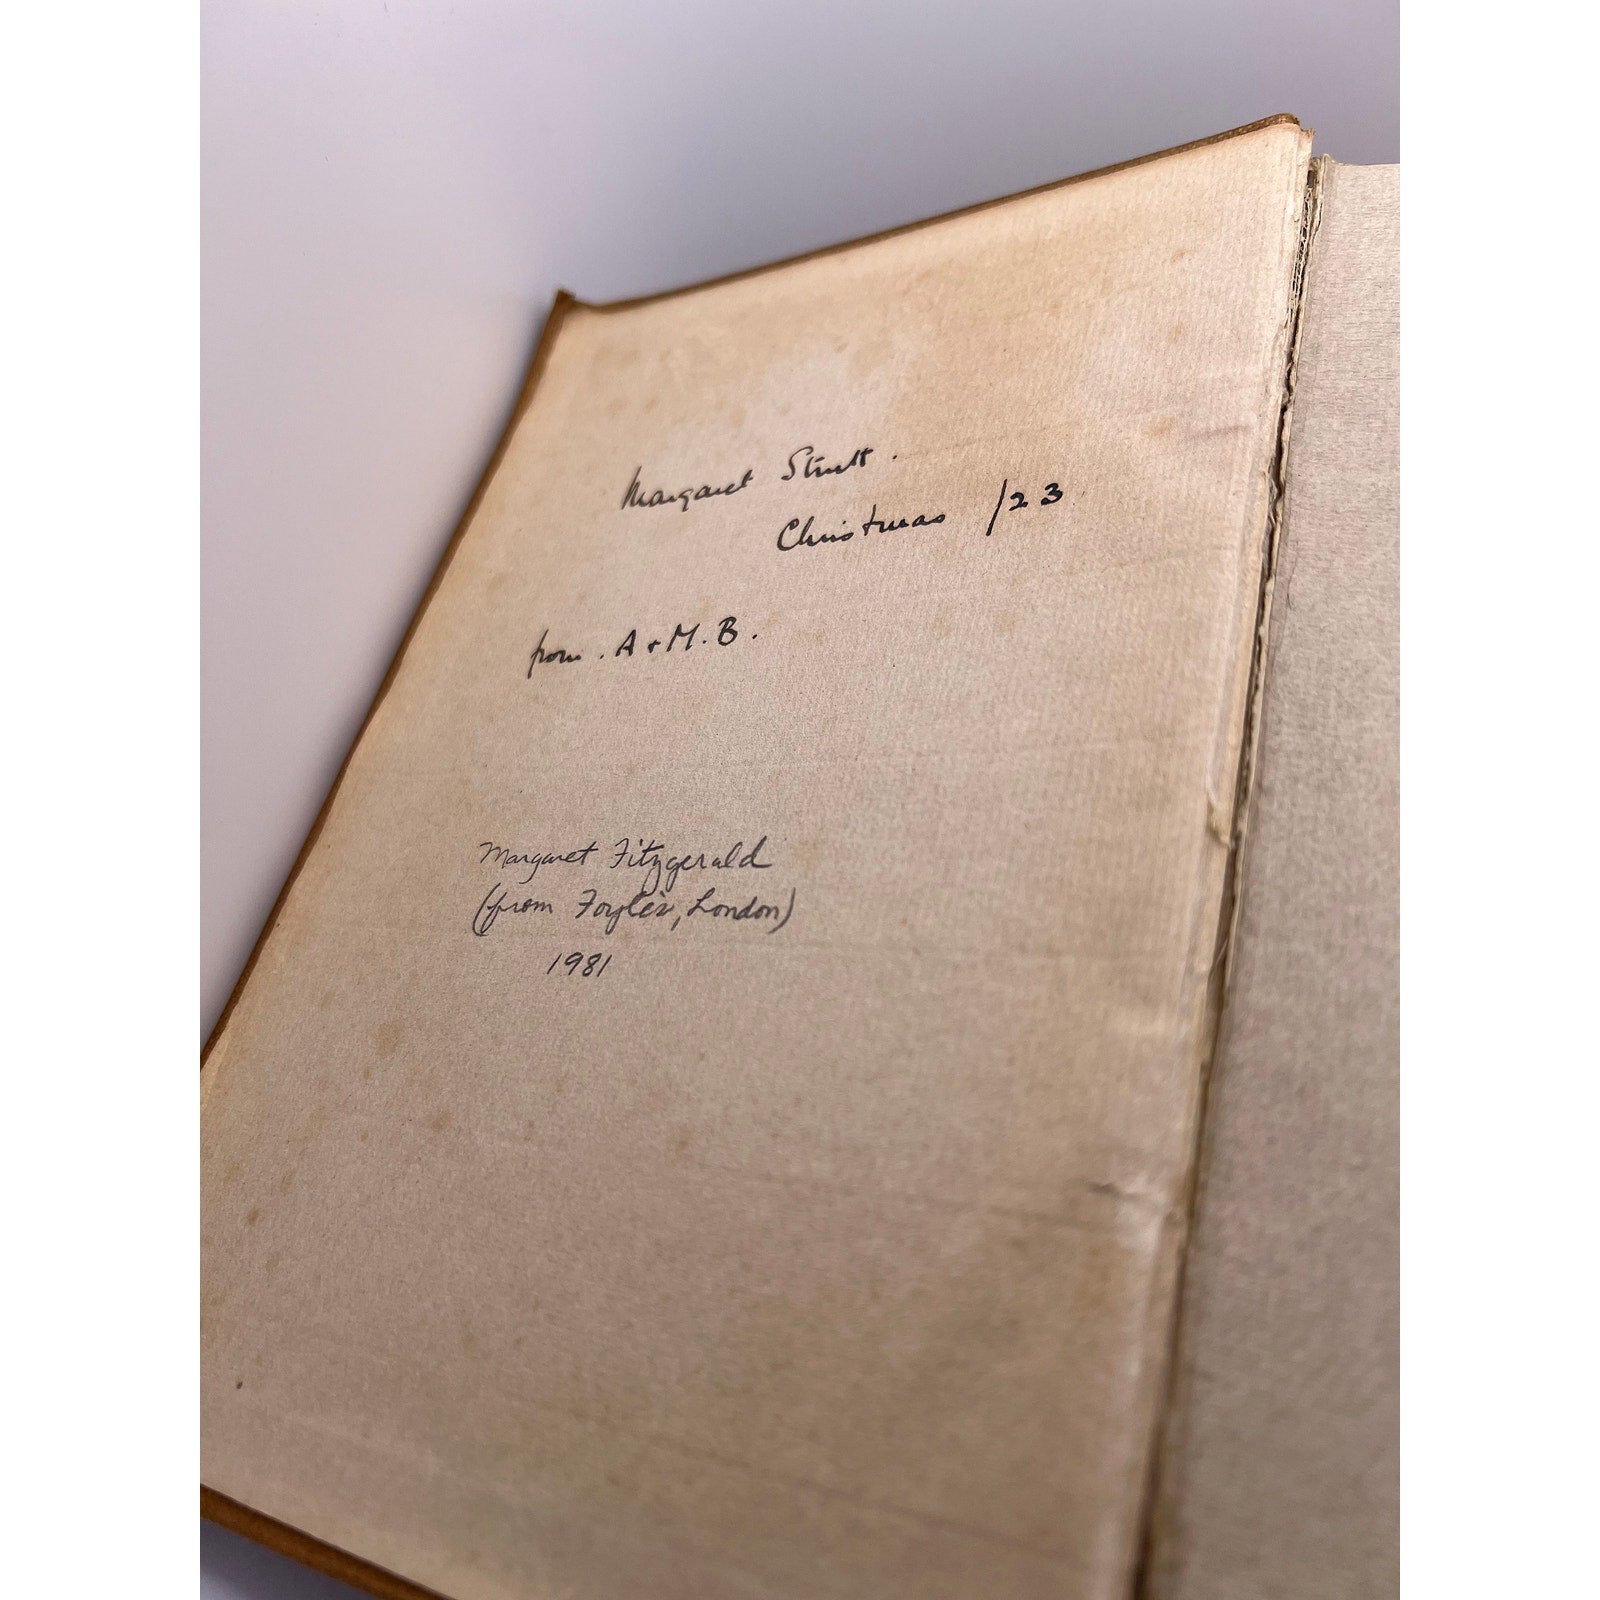 Margaret Strutt.
Christmas /23
from. A + M. B.
Margaret Fitzgerald
(from Foyles, London)
1981